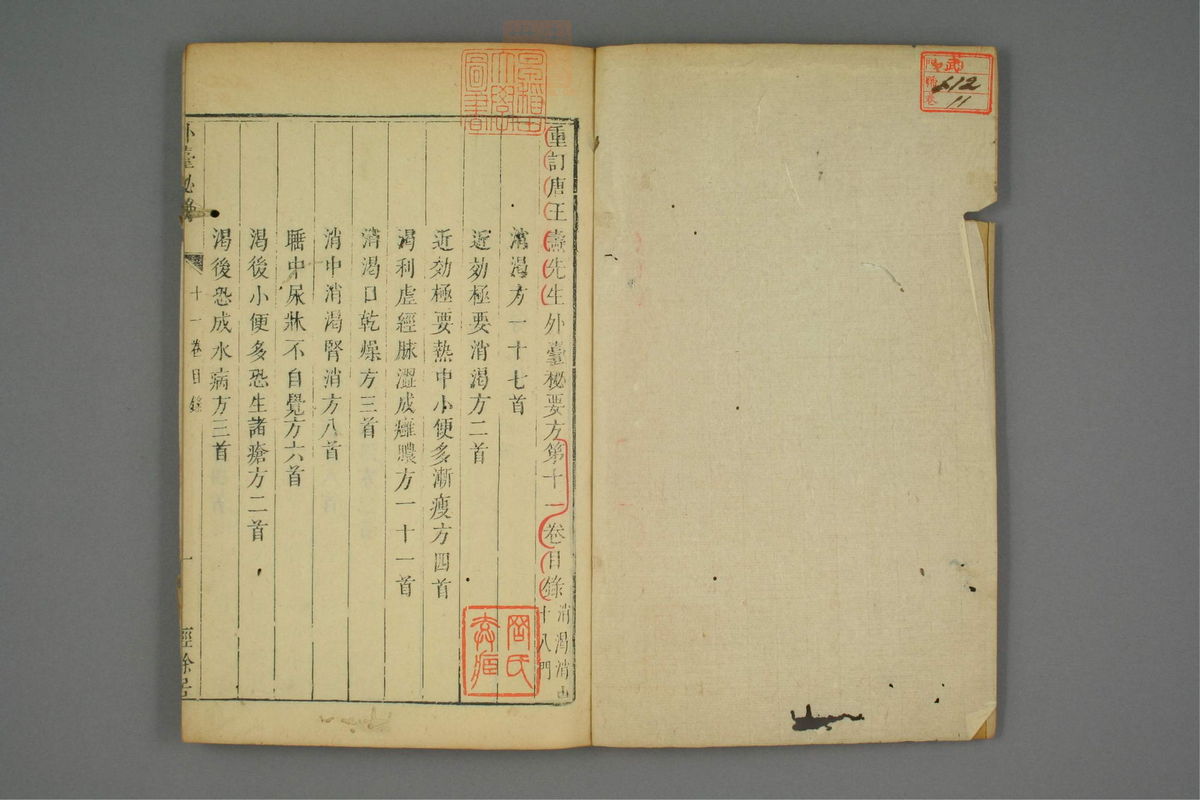 重訂唐王燾先生外臺秘要方第十一卷目錄
消渴消中
十八門
消渴方一十七首
近効極要消渴方二首
近効極要熱中小便多漸瘦方四首
渴利虛經脉澀成癰膿方一十一首
消渴口乾燥方三首
消中消渴腎消方八首
睡中尿牀不自覺方六首
渴後小便多恐生諸瘡方二首
渴後恐成水病方三首
外臺秘
十一卷目錄
一
經餘居
早稻田
大學
圖書
612
11